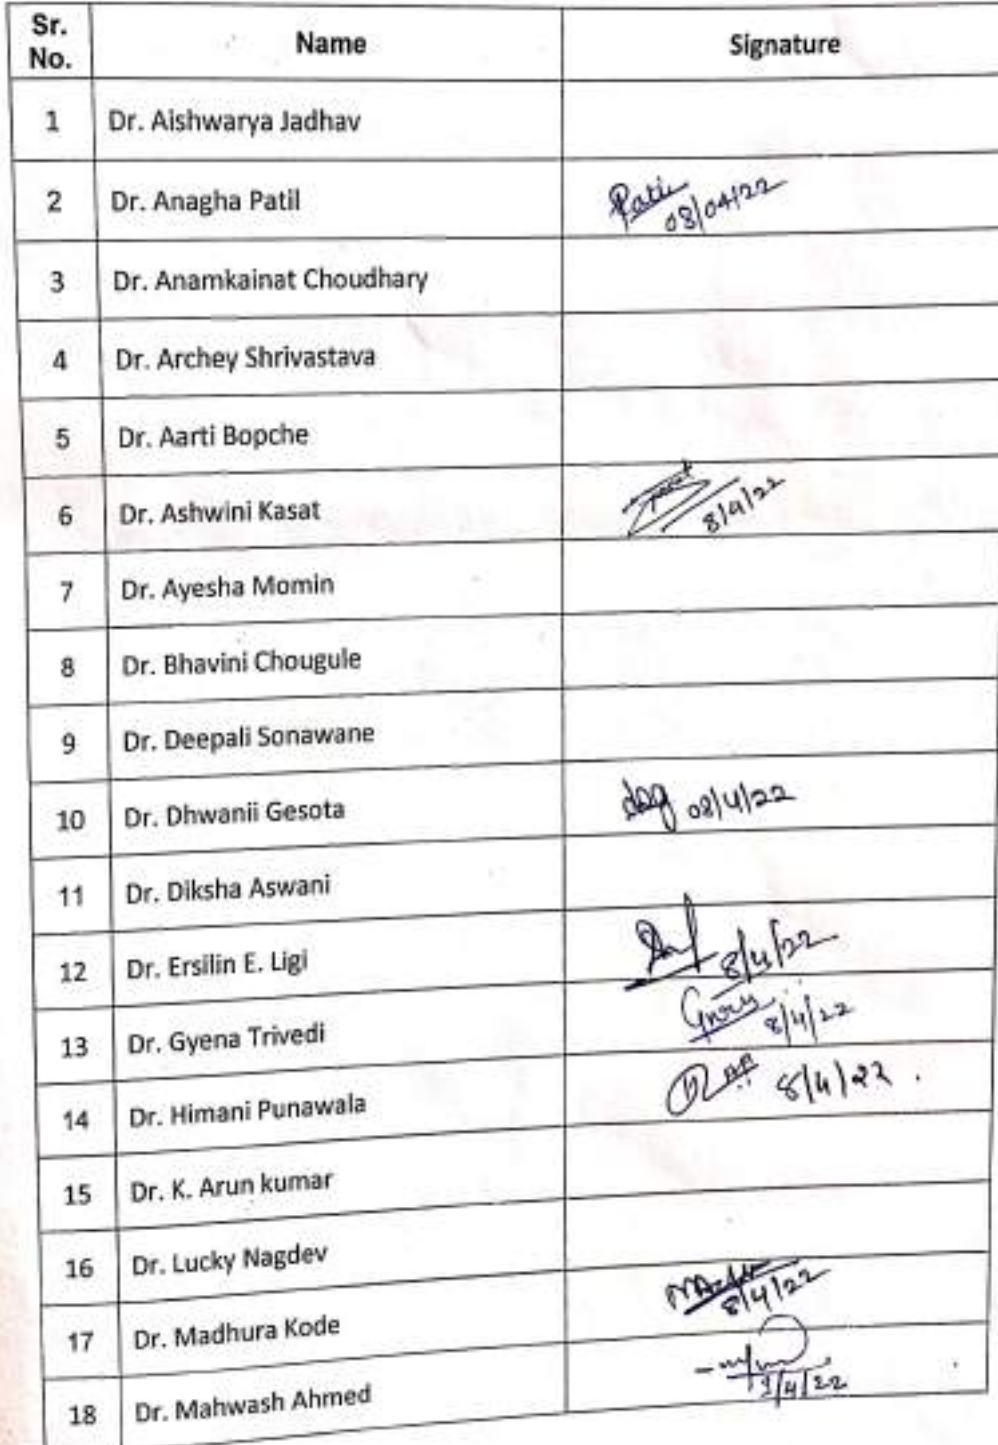 Sr. No. Name Signature
1 Dr. Aishwarya Jadhav
2 Dr. Anagha Patil 08/04/22
3 Dr. Anamkainat Choudhary
4 Dr. Archey Shrivastava
5 Dr. Aarti Bopche
6 Dr. Ashwini Kasat 8/4/22
7 Dr. Ayesha Momin
8 Dr. Bhavini Chougule
9 Dr. Deepali Sonawane
10 Dr. Dhwanii Gesota 08/4/22
11 Dr. Diksha Aswani
12 Dr. Ersilin E. Ligi 8/4/22
13 Dr. Gyena Trivedi 8/4/22
14 Dr. Himani Punawala 8/4/22
15 Dr. K. Arun kumar
16 Dr. Lucky Nagdev
17 Dr. Madhura Kode 8/4/22
18 Dr. Mahwash Ahmed